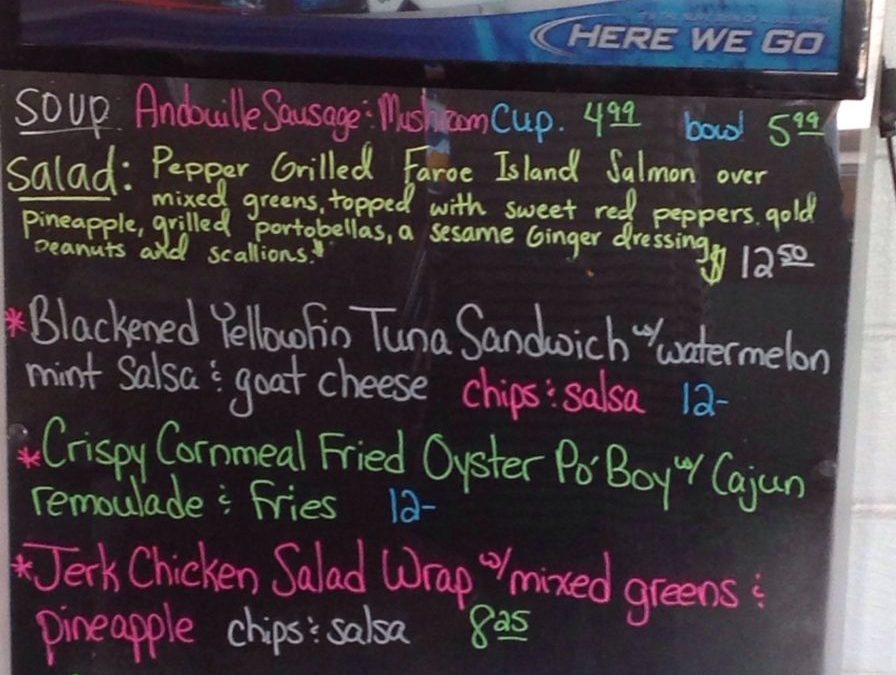 HERE WE GO
SOUP Andouille Sausage & Mushroom Cup. 4.99 bowl 5.99
Salad: Pepper Grilled Faroe Island Salmon over
mixed greens, topped with sweet red peppers, gold
pineapple, grilled portobellas, a sesame Ginger dressing,
Peanuts and scallions! $12.50
*Blackened Yellowfin Tuna Sandwich w/ watermelon
mint Salsa & goat cheese chips & salsa 12-
*Crispy Cornmeal Fried Oyster Po'Boy w/ Cajun
remoulade & Fries 12-
*Jerk Chicken Salad Wrap w/ mixed greens &
pineapple chips & salsa 8.25